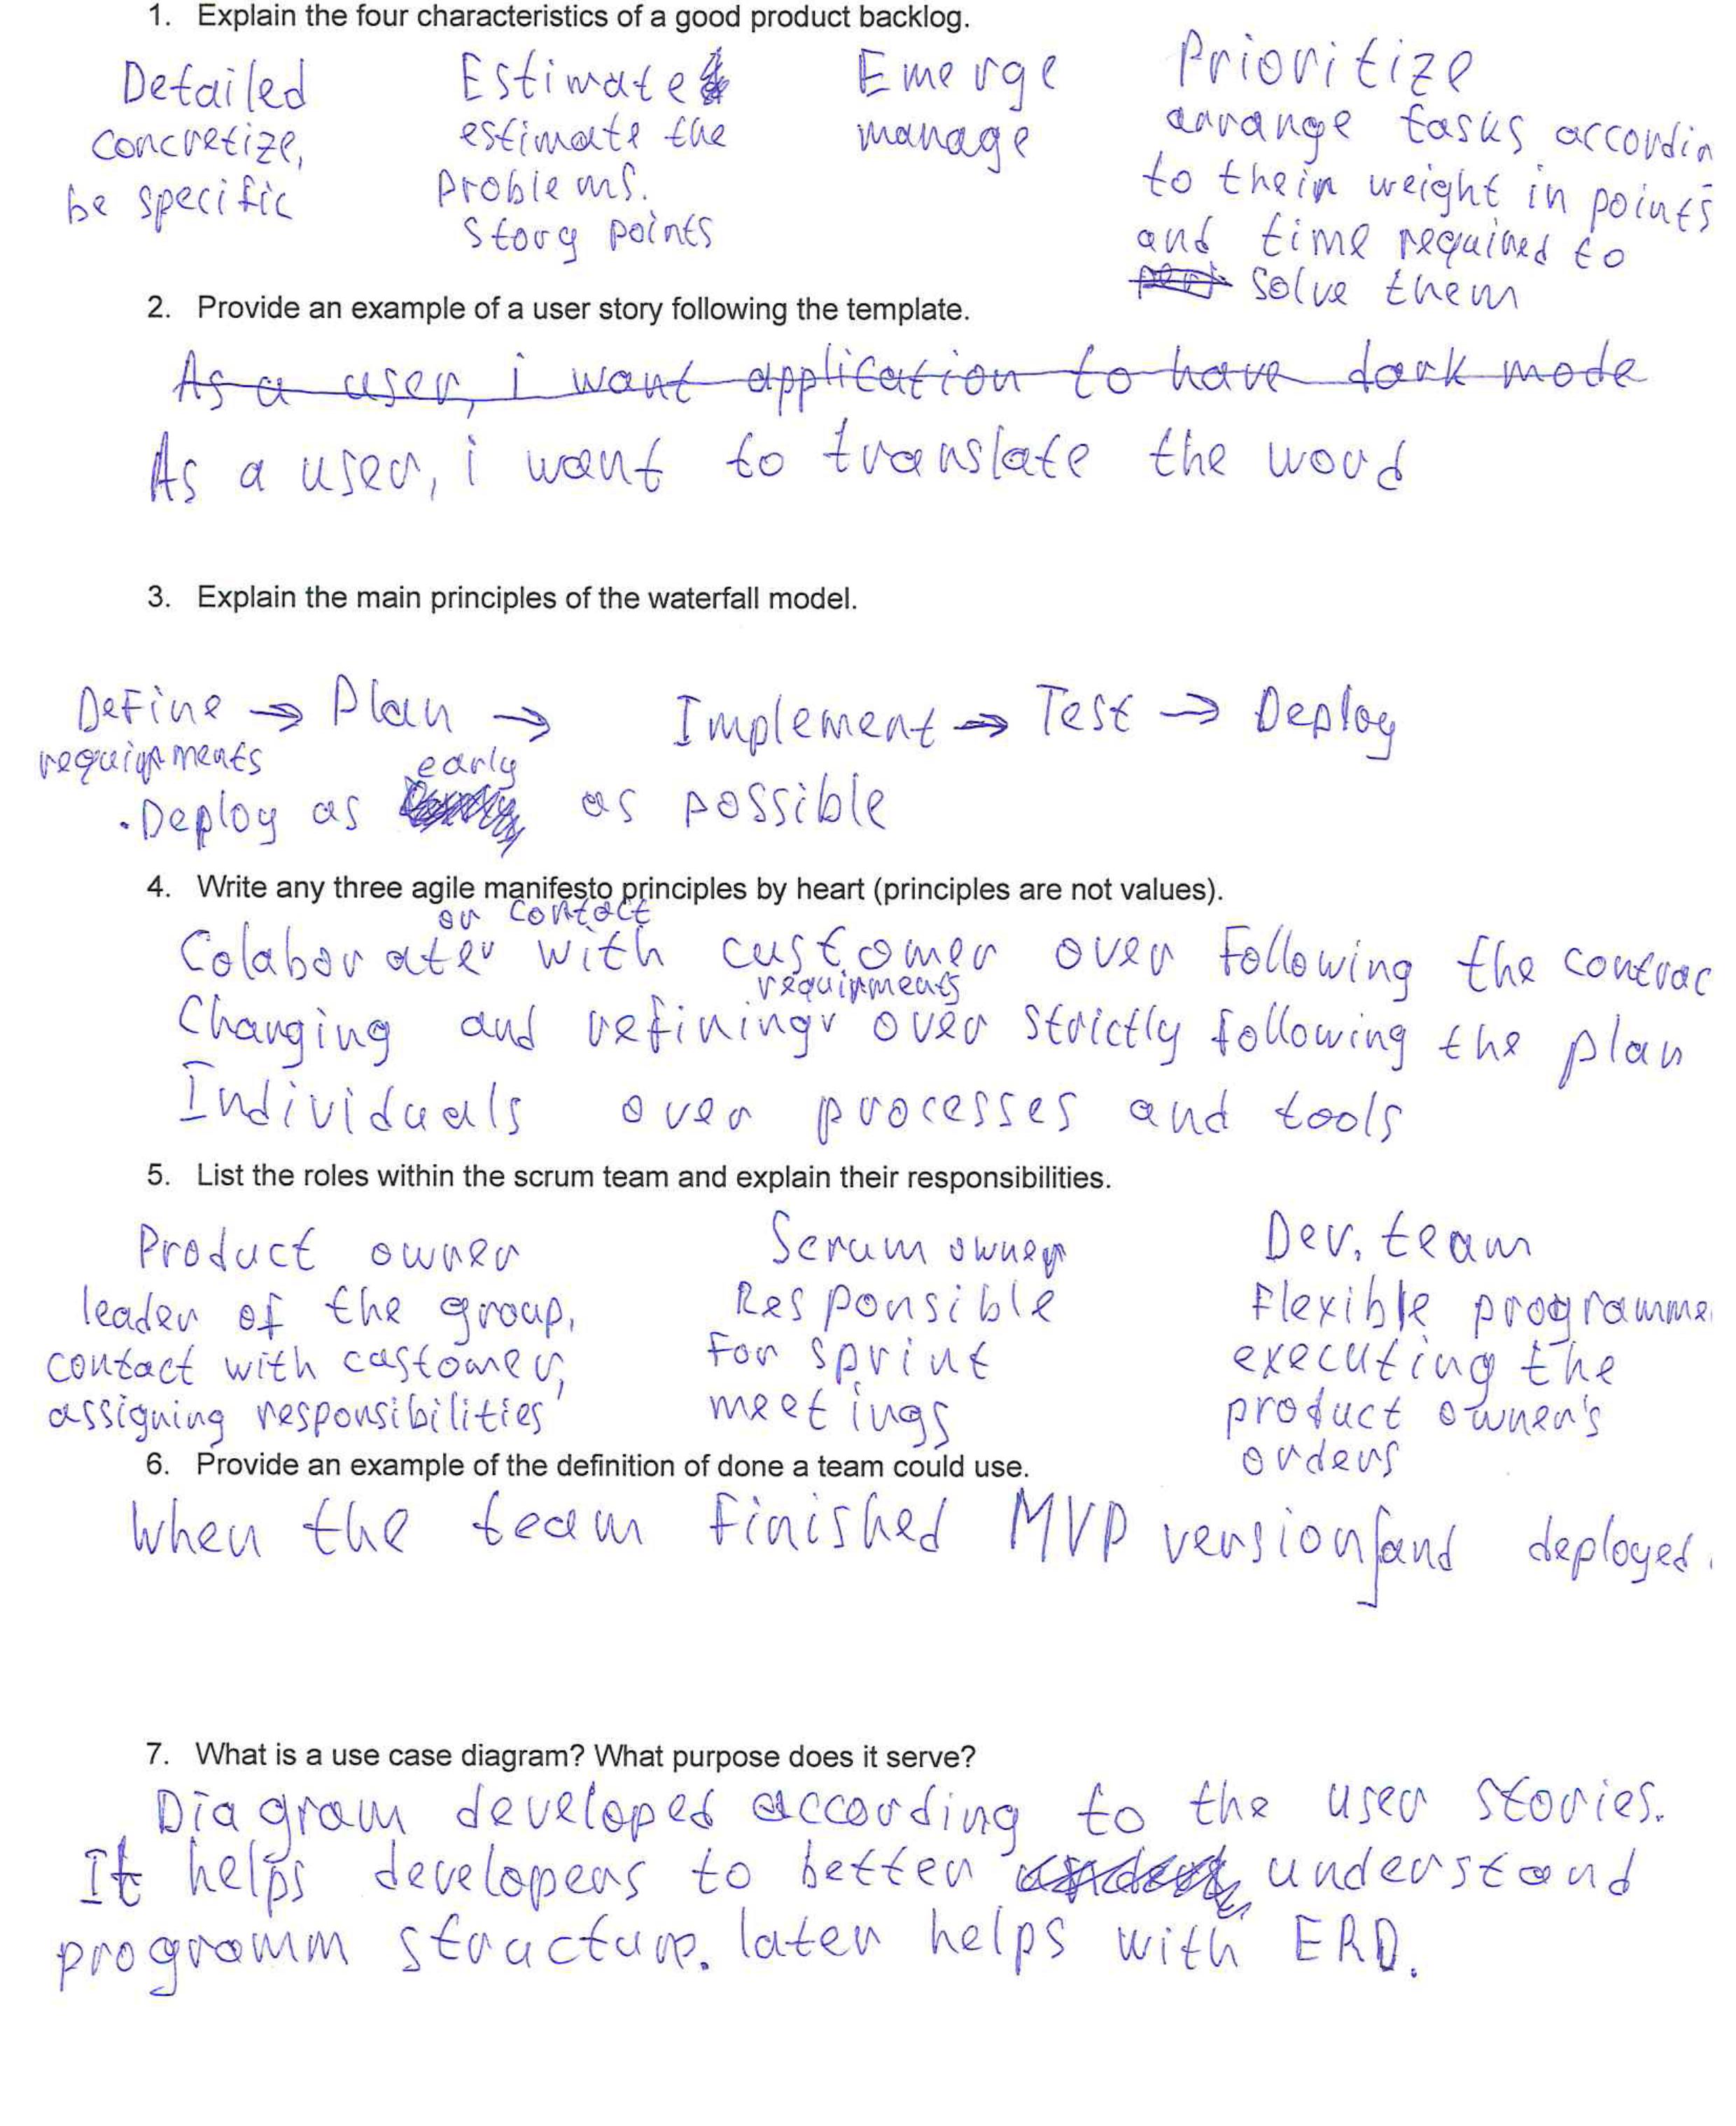 1. Explain the four characteristics of a good product backlog.
Detailed
concretize,
be specific
Estimate
estimate the
problems.
Story points
Emerge
manage
Prioritize
arrange tasks accordin
to their weight in points
and time required to
solve them
2. Provide an example of a user story following the template.
As a user, i want application to have dark mode
As a user, i want to translate the word
3. Explain the main principles of the waterfall model.
Define → Plan → Implement → Test → Deploy
requirments
early
· Deploy as as possible
4. Write any three agile manifesto principles by heart (principles are not values).
or contact
Colaborater with customer over following the contrac
requirments
Changing and refining over strictly following the plan
Individuals over processes and tools
5. List the roles within the scrum team and explain their responsibilities.
Product owner
leader of the group,
contact with castomer,
assigning responsibilities
Scrum owner
Responsible
for sprint
meetings
Dev. team
Flexible programme
executing the
product owner's
orders
6. Provide an example of the definition of done a team could use.
When the team finished MVP version and deployed.
7. What is a use case diagram? What purpose does it serve?
Diagram developed according to the user stories.
It helps developers to better understand
programm structure. later helps with ERD.